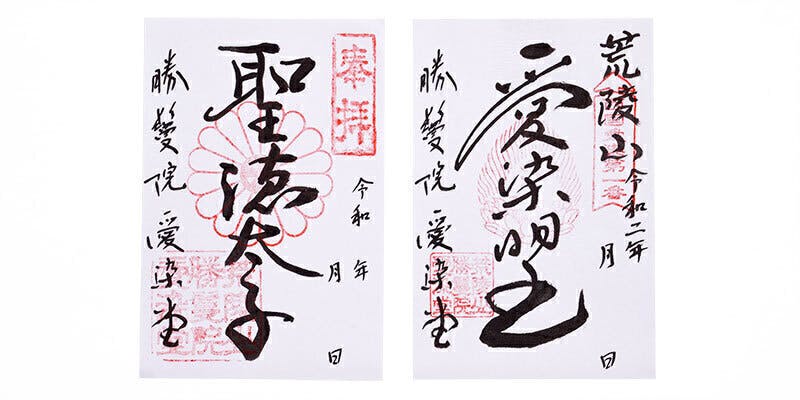 奉拝
令和 年 月 日
聖徳太子
勝鬘院 愛染堂
荒陵山
令和二年 月 日
愛染明王
勝鬘院 愛染堂